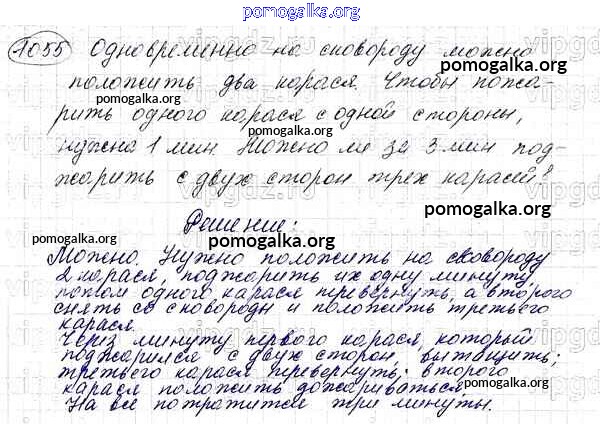 pomogalka.org
1055 Одновременно на сковороду можно
положить два карася. Чтобы пожа-
pomogalka.org
рить одного карася с одной стороны,
pomogalka.org
нужна 1 мин. Можно ли за 3 мин под-
жарить с двух сторон трех карасей?
pomogalka.org
Решение:
pomogalka.org
Можно. Нужно положить на сковороду
2 карася, поджарить их одну минуту
потом одного карася перевернуть, а второго
снять со сковороды и положить третьего
карася.
Через минуту первого карася, который
поджарился с двух сторон, вытащить;
третьего карася перевернуть; второго
карася положить дожариваться.
pomogalka.org
На все потратится три минуты.
pomogalka.org